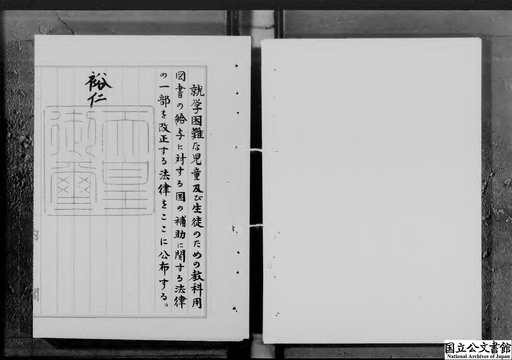 就学困難な児童及び生徒のための教科用
図書の給与に対する国の補助に関する法律
の一部を改正する法律をここに公布する。
裕仁
天皇
御璽
国立公文書館
National Archives of Japan